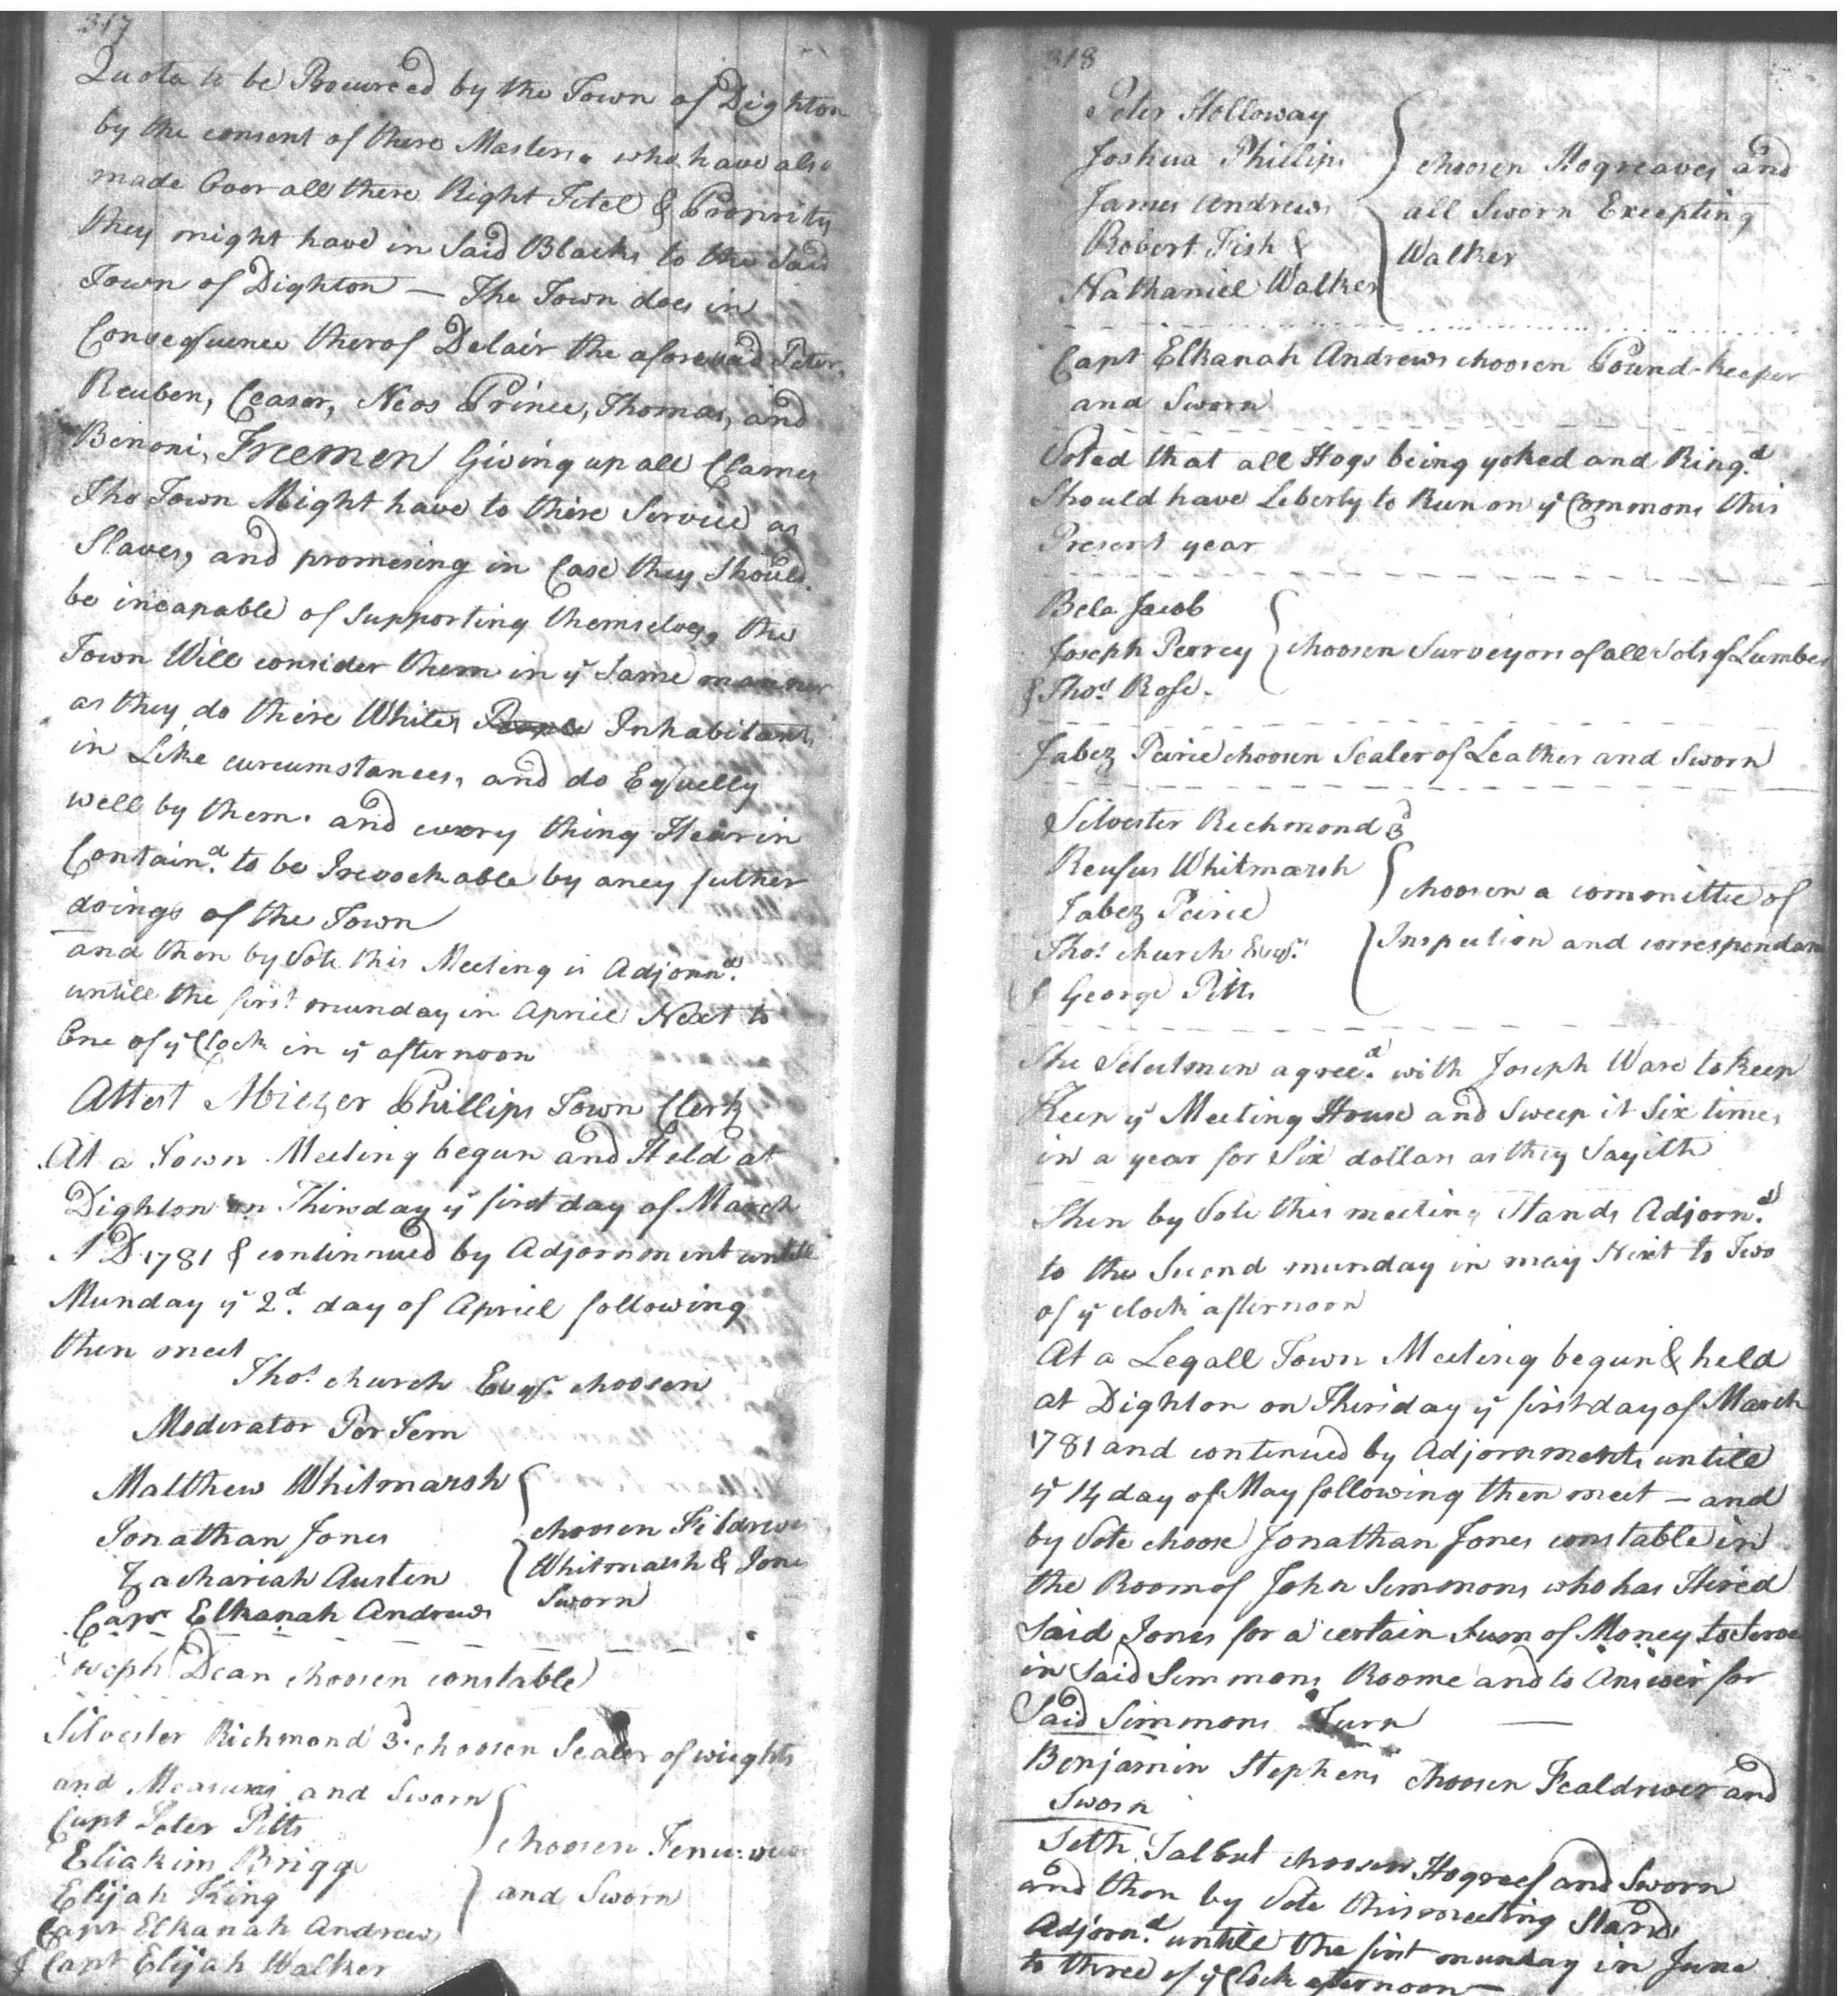 317
Quota to be Procureed by the Town of Dighton
by the consent of there Masters. who have also
made over all there Right Titel & Proprity
they might have in Said Blacks to the Said
Town of Dighton — The Town does in
Consequence therof Delair the aforesaid Peter,
Reuben, Ceasor, Neos Prince, Thomas, and
Benoni, Freemen Giving up all Clames
The Town Might have to there Service as
Slaves, and promesing in Case they Should
be incapable of Supporting themselves, the
Town Will consider them in yͤ Same manner
as they do there Whites People Inhabitants
in Like curcumstances, and do Equelly
well by them. and every thing Hearin
Containᵈ. to be Irevockable by aney futher
doings of the Town
and then by Vote this Meeting is Adjornᵈ.
untill the first munday in April Next to
One of yͤ Clock in yͤ afternoon
Attest Abiezer Phillips Town Clerk
At a Town Meeting begun and Held at
Dighton on Thirsday yͤ first day of March
A D 1781 & continnued by Adjornment untill
Munday yͤ 2ᵈ. day of April following
then meet
Thoˢ. church Esqʳ. choosen
Moderator Por Tem
Matthew Whitmarsh
Jonathan Jones
choosen Fildrive
Zachariah Austen
Whitmarsh & Jone
Capᵗ Elkanah Andrews
Sworn
oseph Dean choosen constable
Silvester Richmond 3ᵈ. choosen Sealer of wieghts
and Measures and Sworn
Capt Peter Pitts
Eliakim Briggs
choosen Fence
Elijah King
and Sworn
Capt Elkanah Andrews
& Capt Elijah Walker
318
Peter Holloway
Joshua Phillips
choosen Hogreaves and
James Andrews
all Sworn Excepting
Robert Fish &
Walker
Nathaniel Walker
Capt Elkanah Andrews choosen Pound-keeper
and Sworn
Voted that all Hogs being yoked and Ringᵈ.
Should have Leberty to Run on yͤ Commons this
Present year
Bela Jacob
Joseph Perrey
choosen Surveyors of all Sots of Lumber
& Thoˢ. Rose.
Jabez Peirce choosen Sealer of Leather and Sworn
Silvester Rechmond 3ᵈ
Reufus Whitmarsh
choosen a committee of
Jabez Peirce
Thoˢ. church Esqʳ.
Inspection and correspondanc
& George Pitts
The Selectmen agreeᵈ. with Joseph Ware to keep
Keep yͤ Meeting House and Sweep it Six times
in a year for Six dollars as they Sayith
Then by Vote this meeting Stands Adjornᵈ.
to the Second munday in may Next to Two
of yͤ clock afternoon
At a Legall Town Meeting begun & held
at Dighton on Thirsday yͤ first day of March
1781 and continued by Adjornments untill
yͤ 14 day of May following then meet — and
by Vote choose Jonathan Jones constable in
the Room of John Simmons who has Hired
Said Jones for a certain Sum of Money to Serve
in Said Simmons Roome and to Answer for
Said Simmons Turn —
Benjamin Stephens choosen Fealdriver and
Sworn
Seth Talbut choosen Hogreef and Sworn
and then by Vote this meeting Stands
Adjornᵈ. untill the first munday in June
to three of yͤ Clock afternoon —